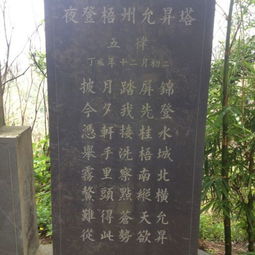 夜登梧州允昇塔
五律
丁亥年十二月初二
披月踏屏錦
今夕我先登
憑軒接桂水
舉手洗梧城
霧里察南北
鰲頭點縱橫
難得荅天允
從此勢欲昇